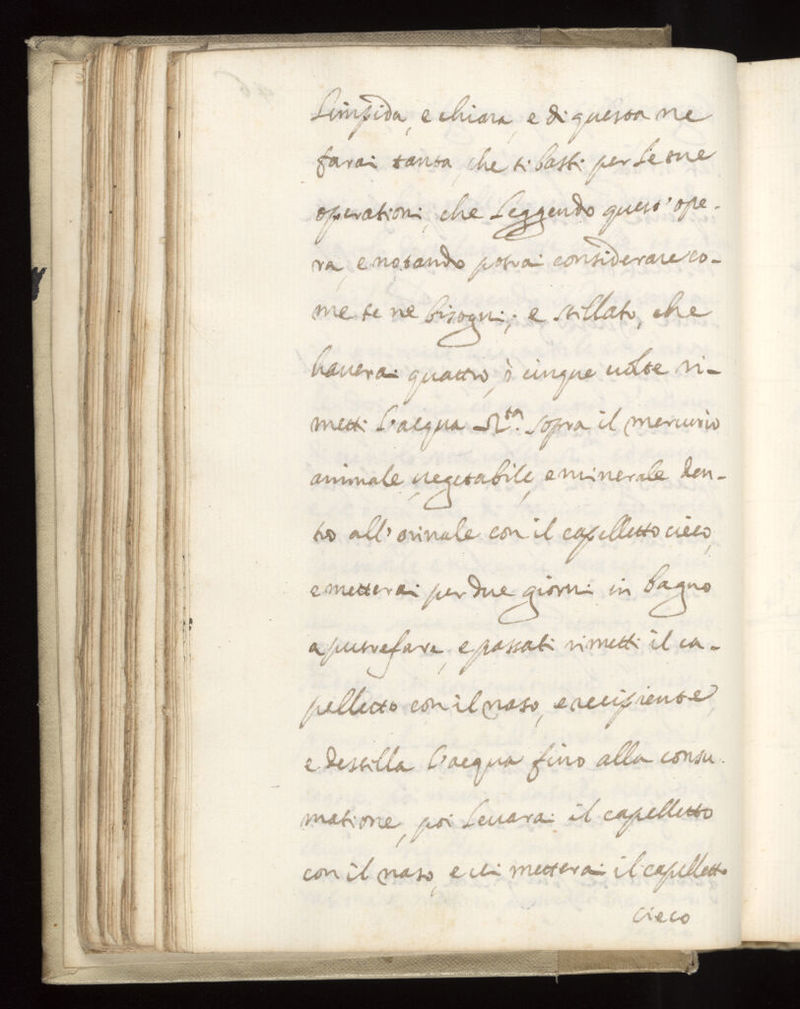 Limpida, e chiara, e di questa ne
farai tanta, che ti basti per le tue
operationi, che Leggendo quest'ope-
ra, e notando potrai considerare co-
me te ne bisogni; e stillato, che
haverai quattro, ò cinque volte ri-
metti L'acqua sopra il mercurio
animale, vegetabile, e minerale den-
tro all'orinale con il capelletto cieco,
e metterai per due giorni in bagno
a putrefare, e passati rimetti il ca-
pelletto con il naso, e recipiente,
e destilla L'acqua fino alla consu-
matione, poi Levarai il capelletto
con il naso, e vi metterai il capelletto
cieco